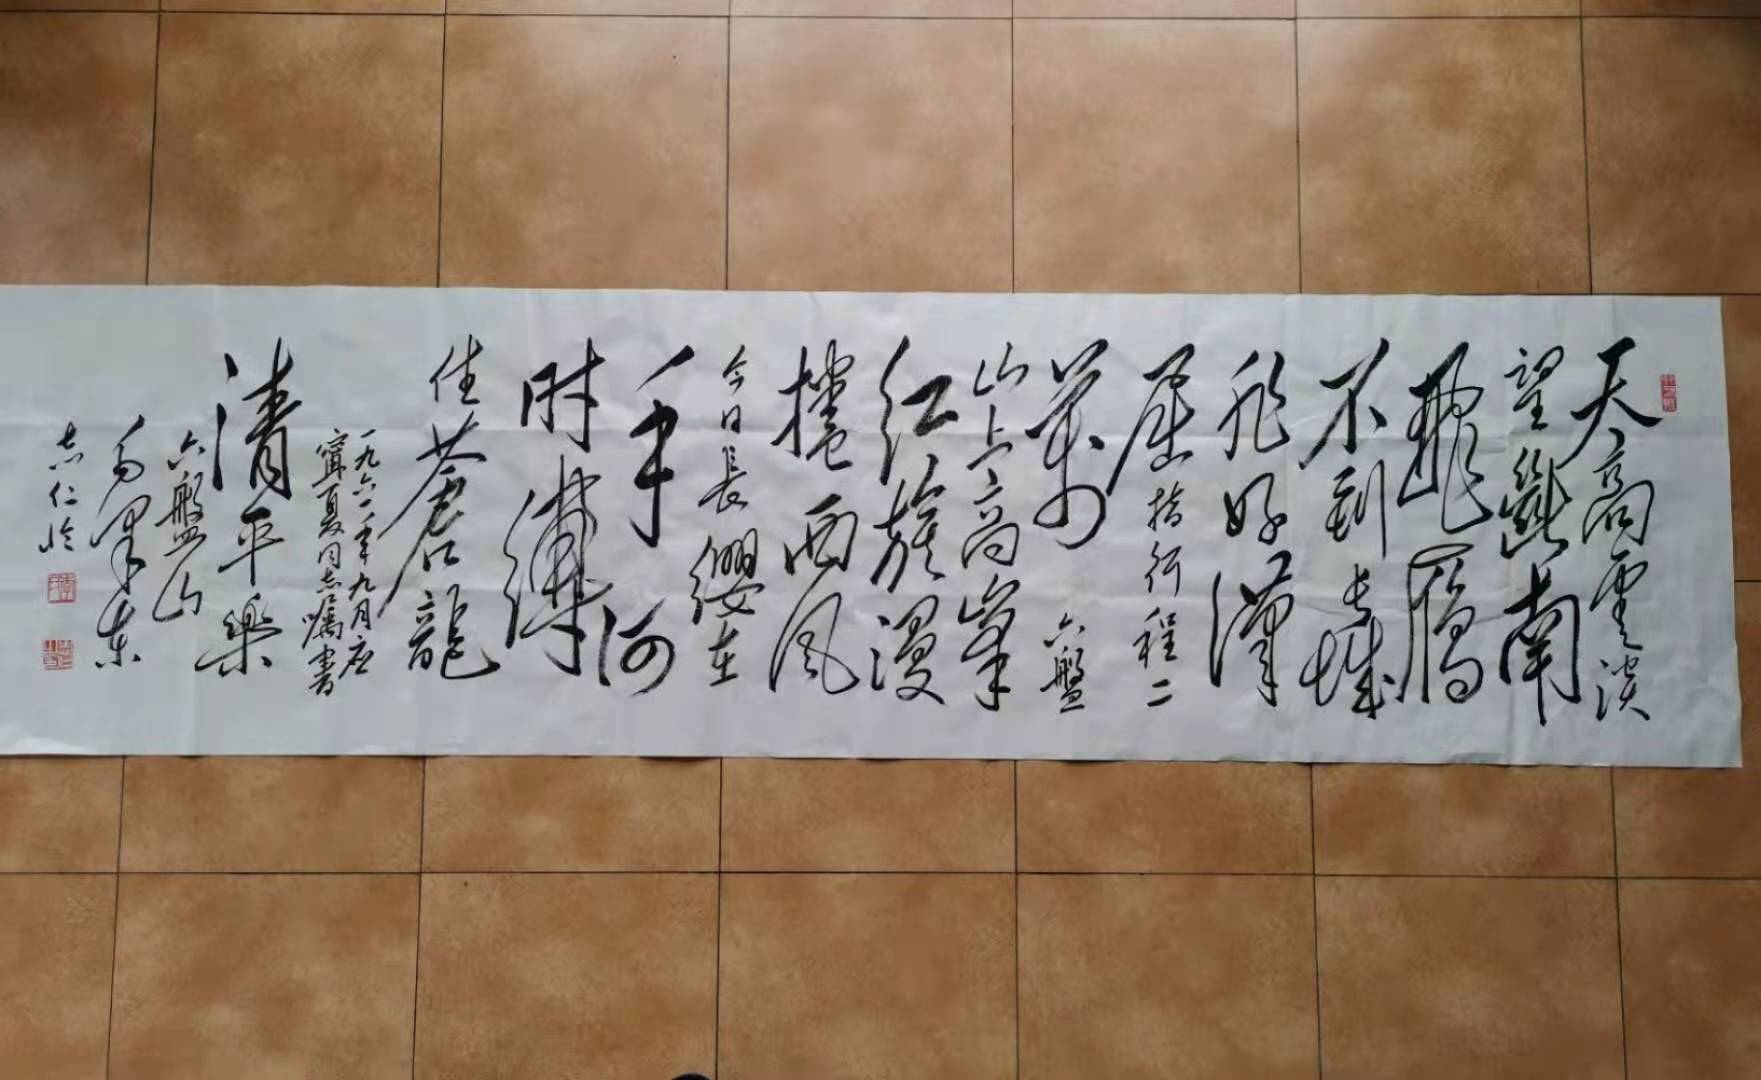 天高雲淡
望斷南
飛雁
不到長城
非好漢
屈指行程二
萬六盤
山上高峯
红旗漫
捲西风
今日長缨在
手何
时縛
住蒼龍
一九六一年九月应
寧夏同志嘱書
清平樂
六盤山
毛澤东
志仁临